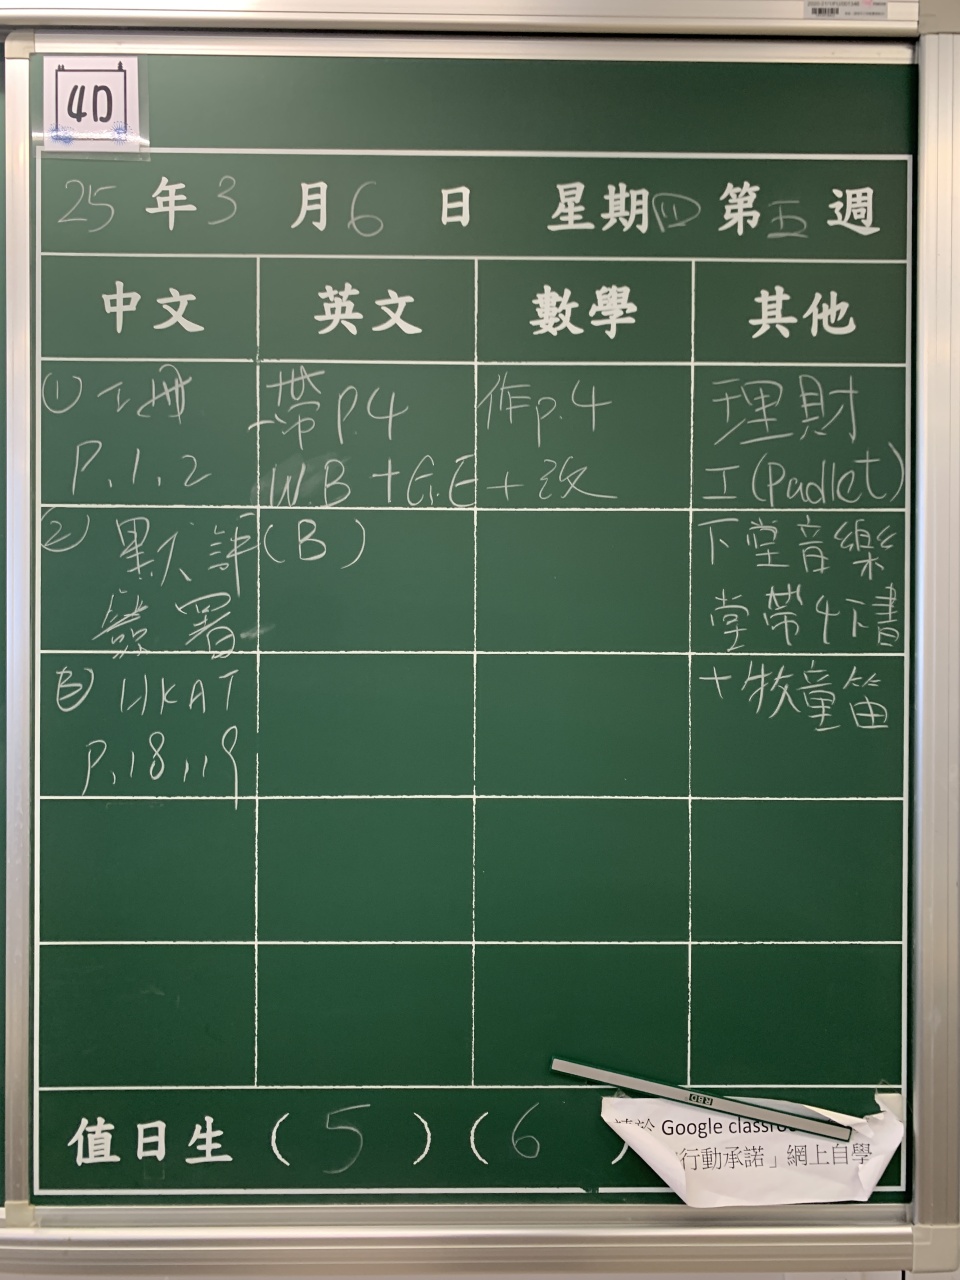 4D
25年3月6日 星期四 第五週
中文 英文 數學 其他
① 工冊
P.1,2
② 默人評
簽署
③ HKAT
P.18,19
帶P.4
W.B+G.E
(B)
作p.4
+改
理財
工(Padlet)
下堂音樂
堂帶4下書
+牧童笛
值日生 (5)(6)
RBD
Google classro
行動承諾」網上自學